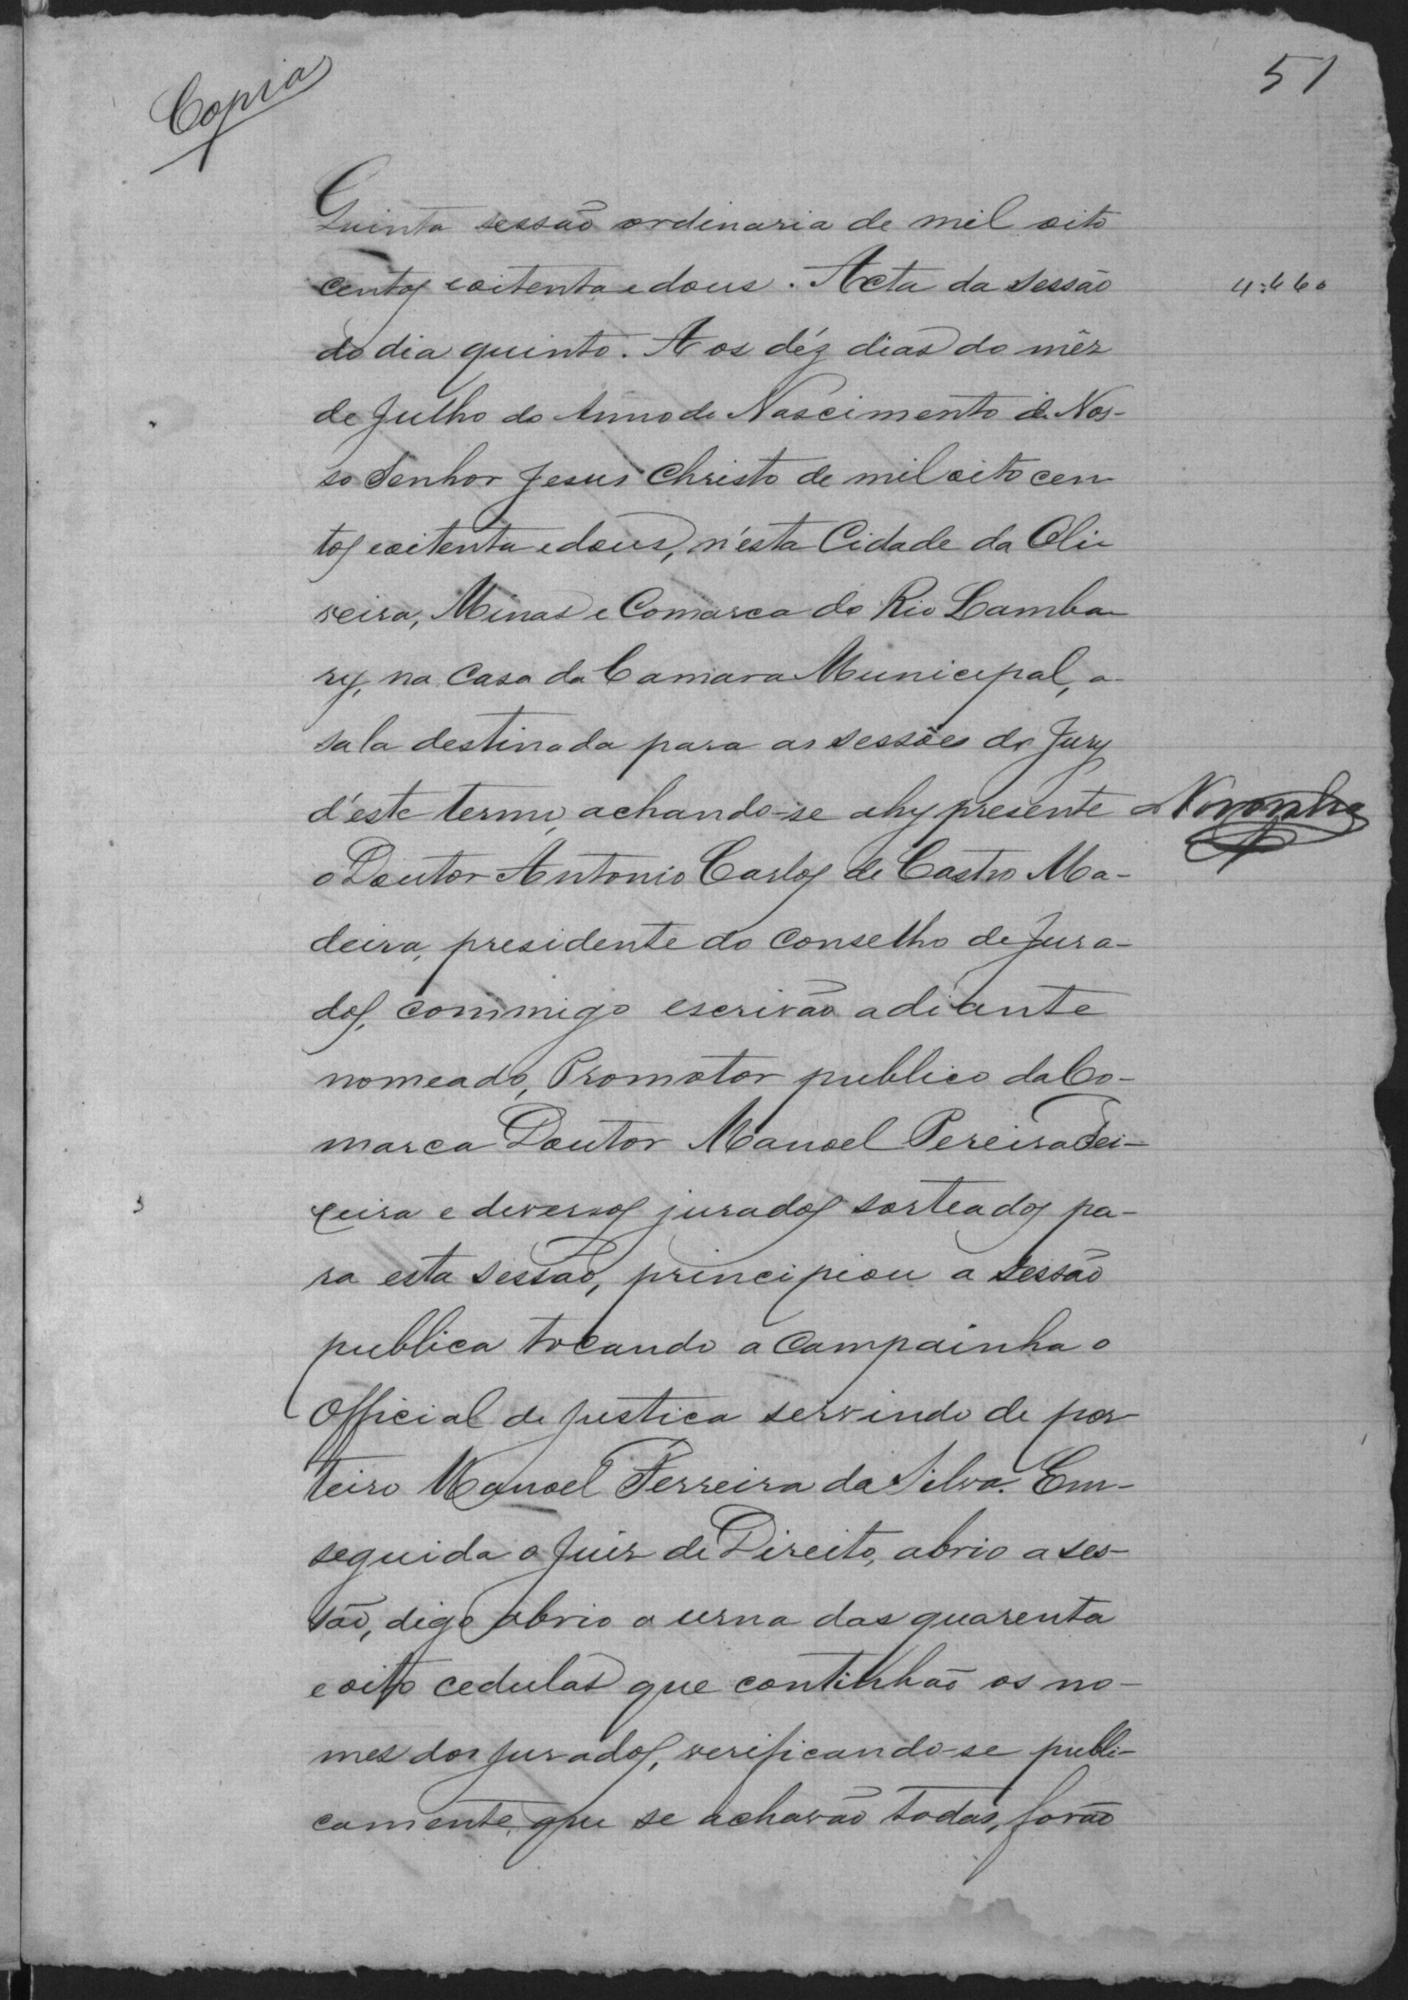 Copia
51
Quinta sessão ordinaria de mil oito
centos e oitenta e dous. Acta da sessão
4:460
do dia quinto. Aos déz dias do mêz
de Julho do Anno do Nascimento de Nos-
so Senhor Jesus Christo de mil oito cen
tos e oitenta e dous, n'ésta Cidade da Oli
veira, Minas e Comarca do Rio Lamba
ry, na Casa da Camara Municipal, a
sala destinada para as sessões do Jury
d'este termo, achando-se ahy presente
Noronha
o Doutor Antonio Carlos de Castro Ma-
deira, presidente do Conselho de Jura-
dos, commigo escrivão adiante
nomeado, Promotor publico da Co-
marca Doutor Manoel Pereira Tei-
xeira e diversos jurados sorteados pa-
ra esta sessão, principiou a sessão
publica tocando a campainha o
Official de justica servindo de por
teiro Manoel Ferreira da Silva. Em-
seguida o Juiz de Direito, abrio a ses-
são, digo abrio a urna das quarenta
e oito cedulas que continhão os no-
mes dos jurados, verificando-se publi-
camente que se achavão todas, forão